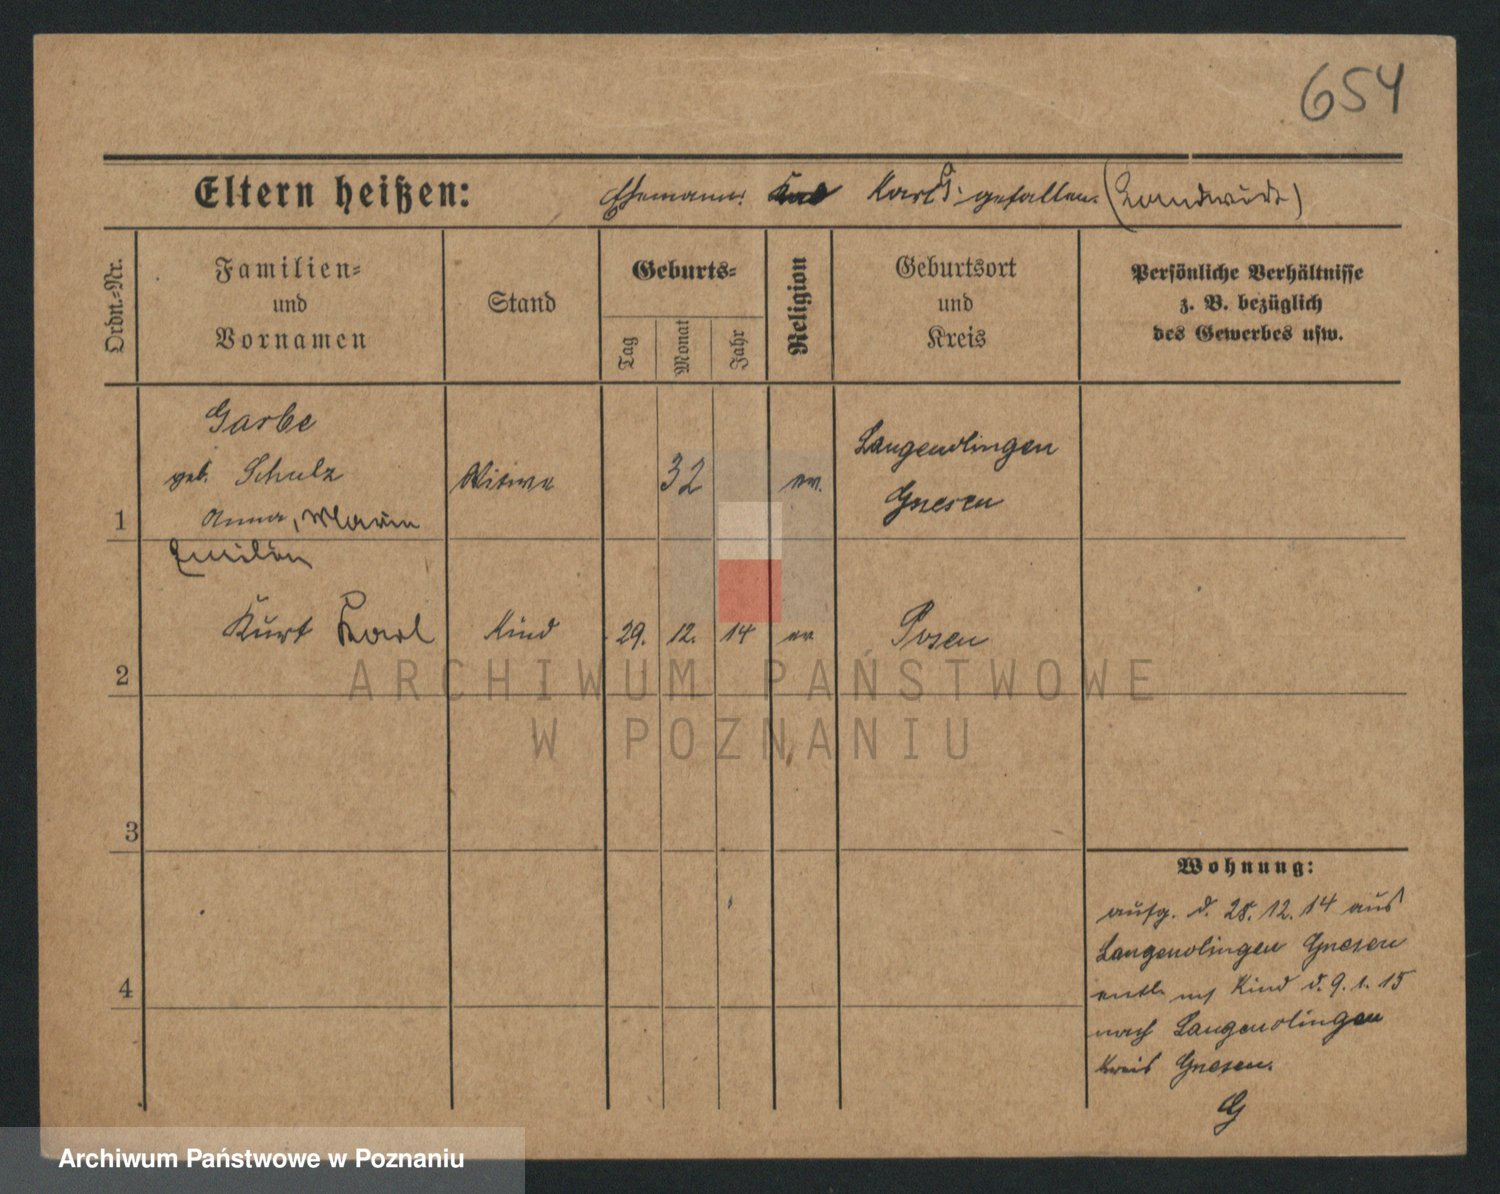 654
Eltern heißen: Ehemann: Karl G. gefallen. (Landwirt)
Ordn.-Nr.
Familien-
und
Vornamen
Stand
Geburts-
Tag
Monat
Jahr
Religion
Geburtsort
und
Kreis
Persönliche Verhältnisse
z. B. bezüglich
des Gewerbes usw.
1
Garbe
geb. Schulz
Anna, Marie
Emilie
Witwe
32
ev.
Langenolingen
Gnesen
2
Kurt Karl
Kind
29. 12. 14
ev.
Posen
3
4
Wohnung:
aufg. d. 28. 12. 14 aus
Langenolingen Gnesen
entl. mit Kind d. 9. 1. 15
nach Langenolingen
Kreis Gnesen.
G
ARCHIWUM PAŃSTWOWE
W POZNANIU
Archiwum Państwowe w Poznaniu